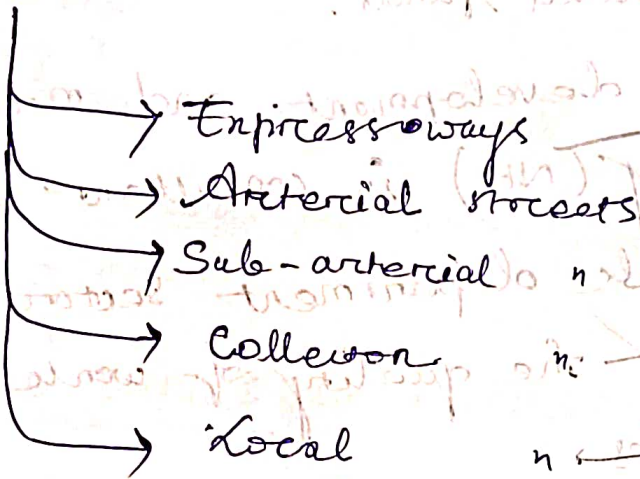 Expressways
Arterial streets
Sub-arterial "
Collector "
Local "